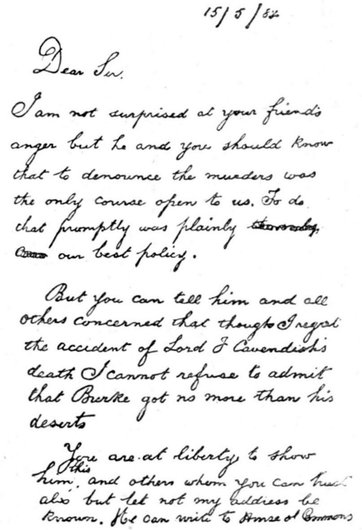 15/5/82
Dear Sir,
I am not surprised at your friend's
anger but he and you should know
that to denounce the murders was
the only course open to us. To do
that promptly was plainly
our best policy.
But you can tell him and all
others concerned that though I regret
the accident of Lord F Cavendish's
death I cannot refuse to admit
that Burke got no more than his
deserts
You are at liberty to show
him this, and others whom you can trust
also but let not my address be
known. He can write to House of Commons